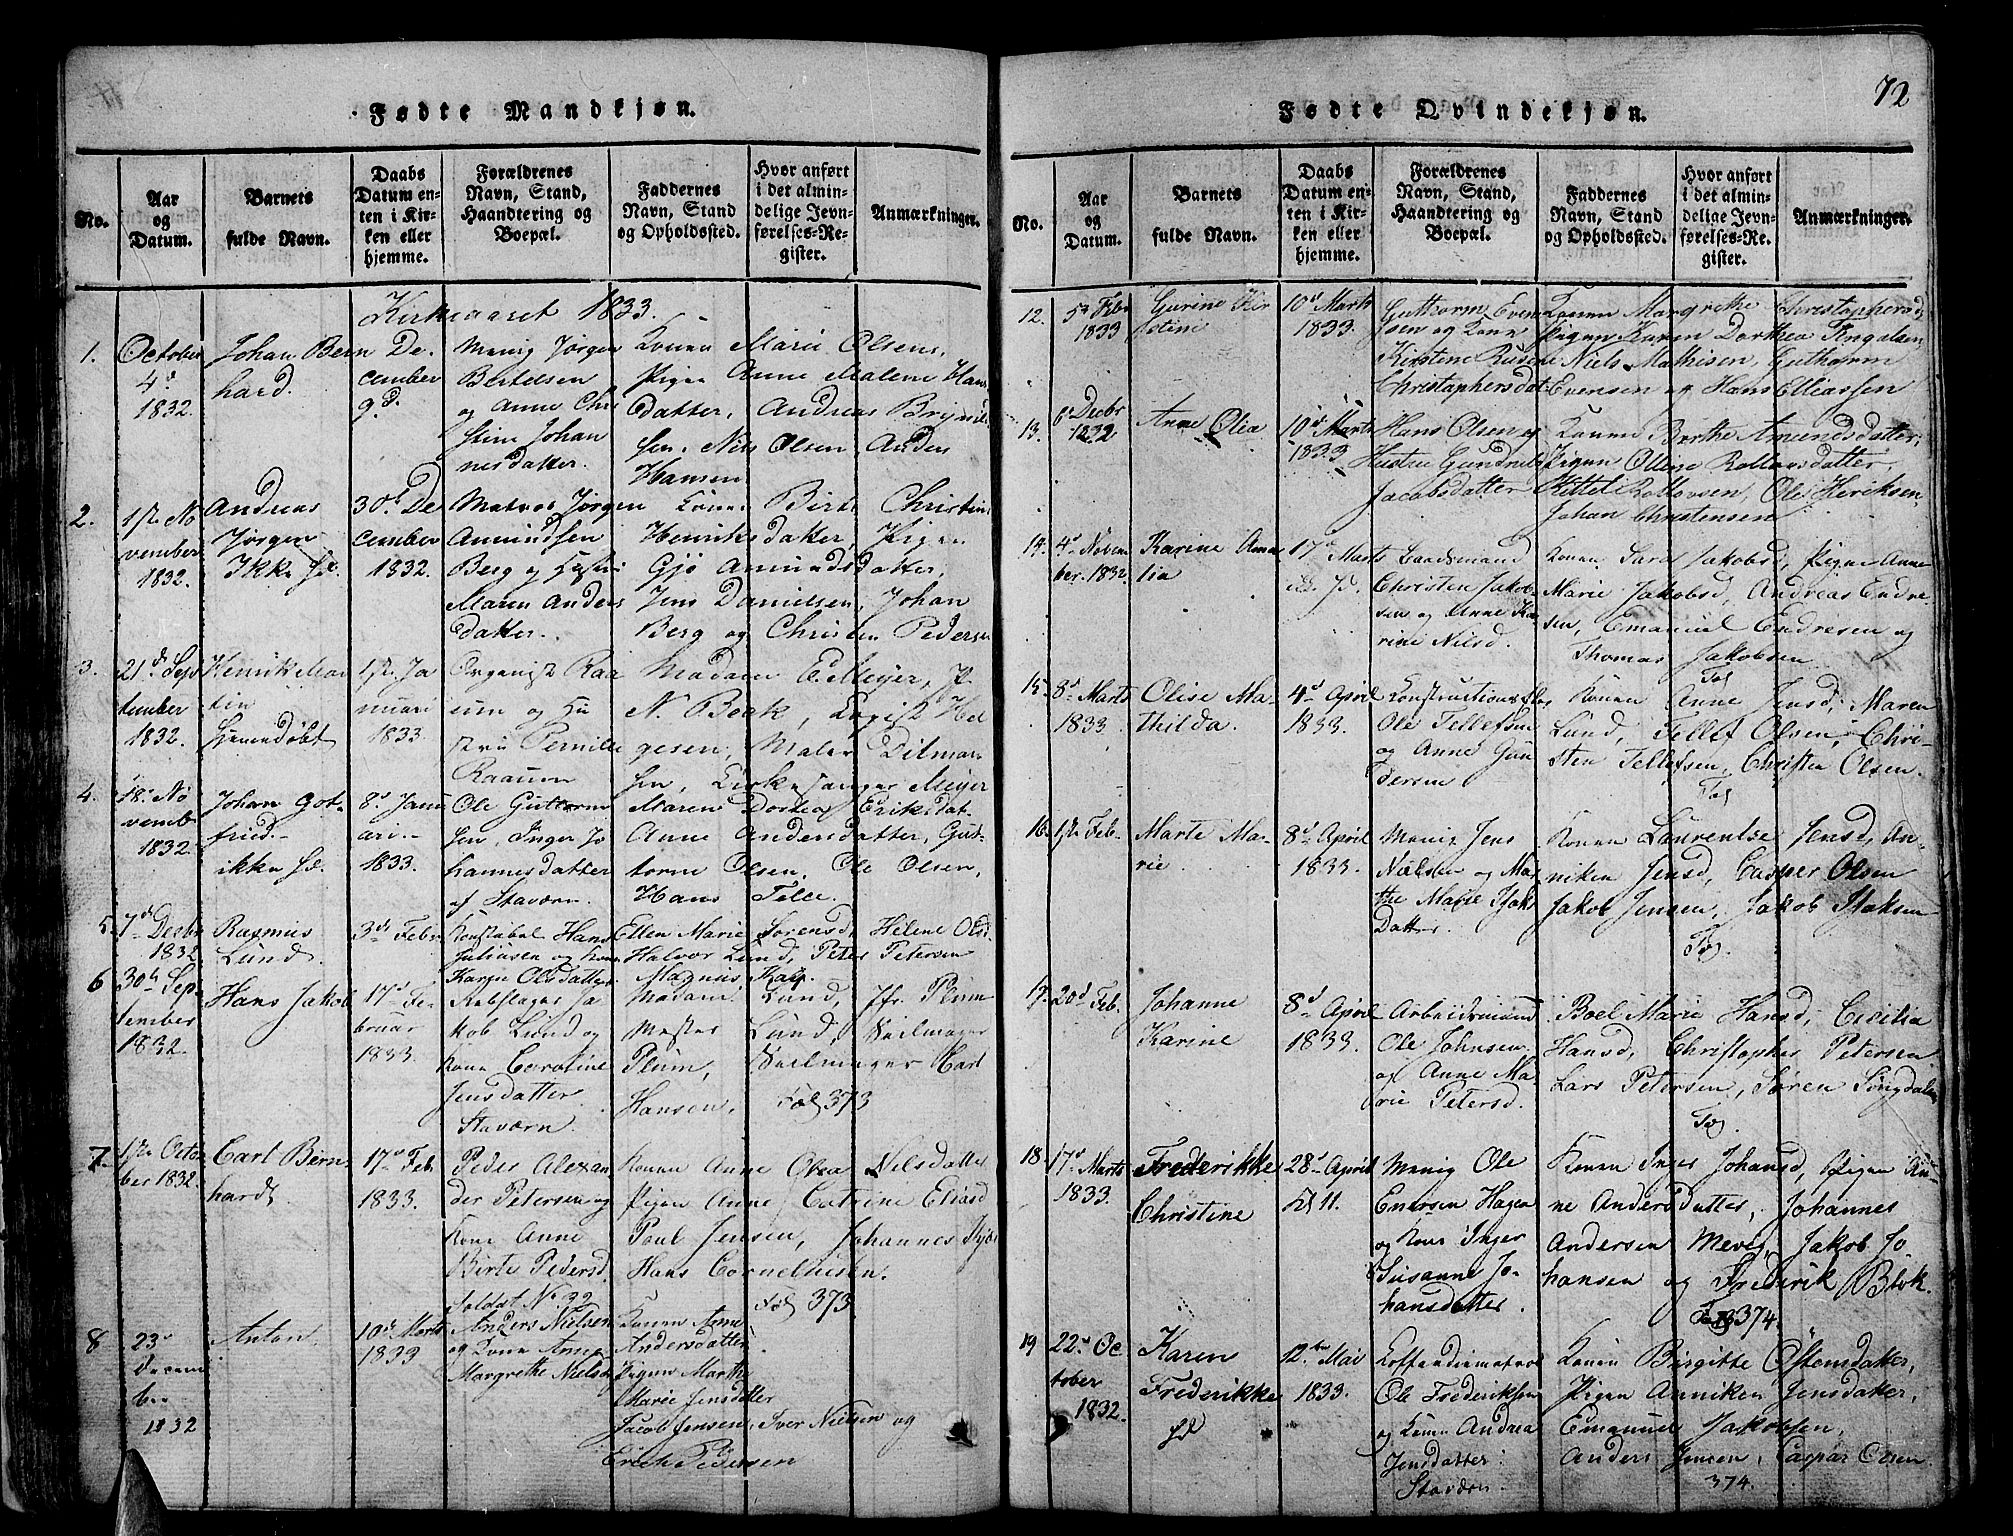 Fødte Mandkjøn.
No.
Aar
og
Datum.
Barnets
fulde Navn.
Daabs
Datum en-
ten i Kir-
ken eller
hjemme.
Forældrenes
Navn, Stand,
Haandtering og
Boepæl.
Faddernes
Navn, Stand
og Opholdssted.
Hvor anført
i det almin-
delige Jevn-
førelses-Re-
gister.
Anmærkninger.
Kirkeaaret 1833.
1.
October
4d
1832.
Johan Bern
hard.
De
cember
9d.
Menig Jørgen
Bertelsen
og Anne Chri
stine Johan
nesdatter.
Konen Marie Olsens,
Pigen Anne Malene Hans
Datter, Andreas Brynild
sen, Nils Olsen, Anders
Hansen
2.
1ste No
vember
1832.
Andreas
Jørgen
Ikke
30te De
cember
1832.
Matros Jørgen
Amundsen
Berg og Hustru
Maren Anders
datter.
Konen Birte Christine
Henriksdatter, Pigen
Gjø Amunds datter,
Jens Danielsen, Johan
Berg og Christen Peders
3.
21d Sep
tember
1832.
Henrik Mar
tin
hjemdøbt
1ste Ja
nuari
1833
Organist Raa
um og Hu
stru Pernille
Raaum
Madam E. Meyer,
N. Beek,
gesen, Maler Ditmar
sen, Kirkesanger Meyer
4.
18d No
vemb
1832.
Johan Got-
fried.
ikke
8d Janu
ari
1833.
Ole Guttorm
sen, Inger Jo
hannesdatter
af Staværn.
Maren Dortea Eriksdat
Anne Andersdatter, Gut-
torm Olsen, Ole Olsen,
Hans Felle.
5.
7d Decbr
1832
Rasmus
Lund
3d Febr
Konstabel Hans
Juliussen og Kone
Karen Olsdatter
Ellen Marie Sørensd, Helene Olsd
Halvor Lund, Peter Petersen
Magnus Kay.
6
30te Sep
tember
1832.
Hans Jakob
17d Fe-
bruar
1833.
Rebslager Ja
kob Lund og
Kone Caroline
Jensdatter
Staværn.
Madam Lund, Jfr. Plum
Mester Lund, Seilmager
Plum, Seilmager Karl
Hansen. Fol 373
7.
1ste Octo
ber 1832.
Carl Bern
hardt.
17d Feb
1833.
Peder Alexan
der Petersen og
Kone Anne
Birte Pedersd
Konen Anne Olea Nilsdatter
Pigen Anne Catrine Eliasd
Poul Jensen, Johannes
Hans Corneliusen.
Fol 373
8
23d
Decem
ber
1832
Anton.
10de Marts
1833
Soldat No 32
Anders Nielsen
og Kone Anne
Margrethe Nielsd
Konen Anne
Andersdatter
Pigen Marthe
Marie Jensdatter
Jacob Jensen, Iver Nielsen og
Erich Pedersen
72
Fødte Qvindekjøn.
No.
Aar
og
Datum.
Barnets
fulde Navn.
Daabs
Datum en-
ten i Kir-
ken eller
hjemme.
Forældrenes
Navn, Stand,
Haandtering og
Boepæl.
Faddernes
Navn, Stand
og Opholdssted.
Hvor anført
i det almin-
delige Jevn-
førelses-Re-
gister.
Anmærkninger.
12.
5te Feb
1833
Gurine Kir
stine
10d Marts
1833.
Guttorm Even
sen og Kone
Kirstene
Christophersdat
Konen Margrethe Christophersd
Pigen Karen Dorthea Ingalsen,
Niels Mathisen, Guthorm
Evensen og Hans Elliassen
13.
6te Decbr
1832
Anne Olea
10de Marts
1833
Hans Olsen og
Hustru Gundrid
Jacobsdatter
Konen Berthe Amundsdatter,
Pigen Olline Rollovsdatter,
Kittel Rollovsen, Ole Heriksen
Johan Christensen
14.
4d Novem
ber 1832.
Karine Ama
lia
17d Marts
Baadsmand
Christen Jakob
sen og Anne Ka
rine Nilsd.
Konen Sara Jakobsd, Pigen Anne
Marie Jakobsd, Andreas Endre-
sen, Emanuel Endresen og
Thomas Jakobsen
15.
8d Marts
1833.
Olise Ma-
thilda.
4d April
1833.
Ole Tellefsen
og Anne Gun
dersen
Konen Anne Jensd, Maren
Lund, Tellef Olsen, Chri-
sten Tellefsen, Christen Olsen.
16.
1ste Feb.
Marte Ma-
rie
8d April
1833.
Menig Jens
Nielsen og Mar
the Marie Isaks
Datter
Konen Laurentse Jensd, An-
niken Jensd, Casper Olsen
Jakob Jensen, Jakob Isaksen
17.
20d Feb.
Johanne
Karine
8d April
1833.
Arbeidsmand
Ole Johnsen
og Anne Ma
rie Petersd.
Boel Marie Hansd, Cicilia
Hansd, Christopher Petersen
Lars Petersen, Søren Songdalen
18.
17d Marts
1833.
Frederikke
Christine
28d April
Menig Ole
Enersen Hagen
og Kone Inger
Susanne Jo-
hansdatter.
Konen Inger Johansd, Pigen An-
ne Andersdatter, Johannes
Andersen Meveg, Jakob Jo
hansen og Frederik Blok.
374.
19
22d Oc
tober
1832.
Karen
Frederikke
12te Mai
1833.
Ole Frederiksen
og Konen Andrea
Jensdatter
Staværn.
Konen Birgitte Østensdatter,
Pigen Anniken Jensdatter,
Emanuel Jakobsen,
Anders Jensen, Caspar Olsen
374.